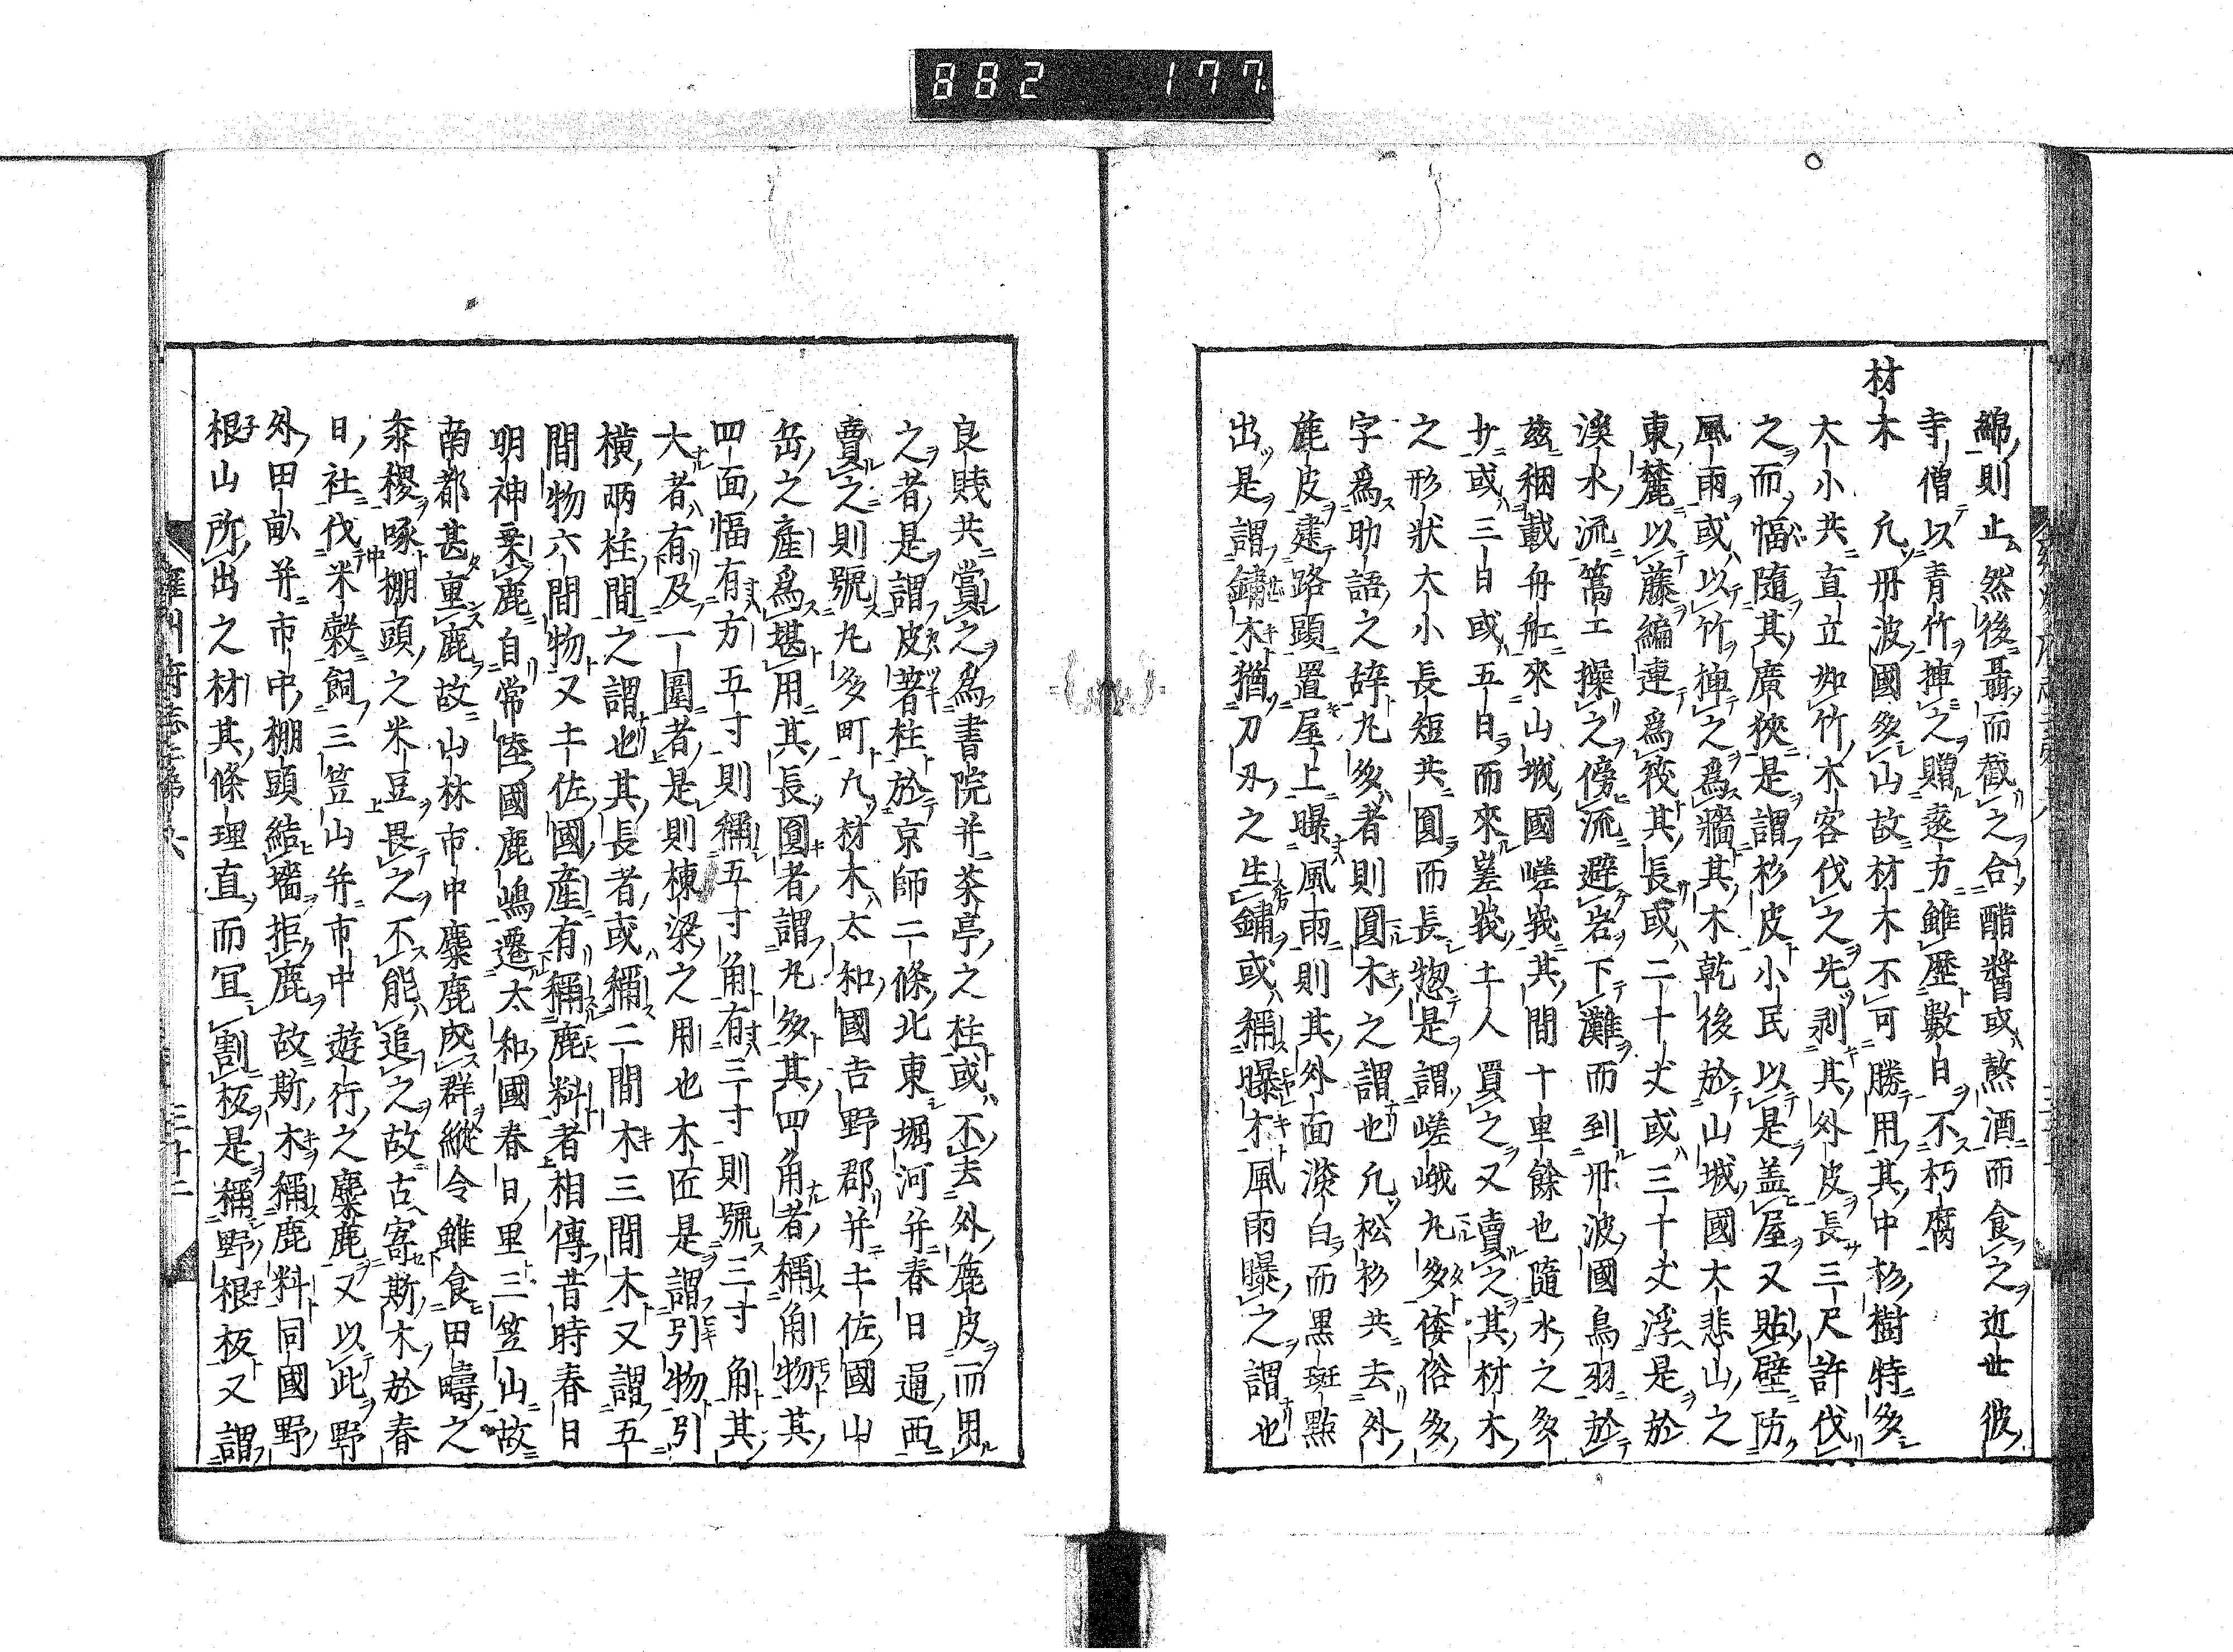 882 177
綿則止然後曝而截之合醋醬或熬酒而食之近世彼
寺僧以青竹揷之贈遠方雖歷數日不朽腐
材木 凢丹波國多山故材木不可勝用其中杉樹特多
大小共直立如竹木客伐之先剥其外皮長三尺許伐
之而幅隨其廣狹是謂杉皮小民以是盖屋又貼壁防
風雨或以竹揷之爲牆其木乾後於山城國大悲山之
東麓以藤編連爲筏其長或二十丈或三十丈浮是於
溪水流篙工操之傍流避岩下灘而到丹波國鳥羽於
茲稇載舟舩來山城國嵯峩其間十里餘也隨水之多
少或三日或五日而來嵯峩土人買之又賣之其材木
之形狀大小長短共圓而長惣是謂嵯峨丸多倭俗多
字爲助語之辞丸多者則圓木之謂也凢松杉共去外
麁皮建路頭置屋上曝風雨則其外面潔白而黒斑點
出是謂鏽木猶刀刄之生鏽或稱曝木風雨曝之謂也
良賎共賞之爲書院并茶亭之柱或不去外麁皮而用
之者是謂皮著柱於京師二條北東堀河并春日通西
賣之則號丸多町凢材木太和國吉野郡并土佐國山
岳之產爲堪用其長圓者謂丸多其四角者稱角物其
四面幅有方五寸則稱五寸角有三寸則號三寸角其
大者有及一圍者是則棟梁之用也木匠是謂引物引
横兩柱間之謂也其長者或稱二間木三間木又謂五
間物六間物又土佐國產有稱鹿料者相傳昔時春日
明神乗鹿自常陸國鹿嶋遷太和國春日里三笠山故
南都甚重鹿故山林市中麋鹿成群縱令雖食田疇之
黍稷啄棚頭之米豆畏之不能追之故古寄斯木於春
日社伐米穀飼三笠山并市中遊行之麋鹿又以此野
外田畝并市中棚頭結墻拒鹿故斯木稱鹿料同國野
根山所出之材其條理直而冝割板是稱野根板又謂